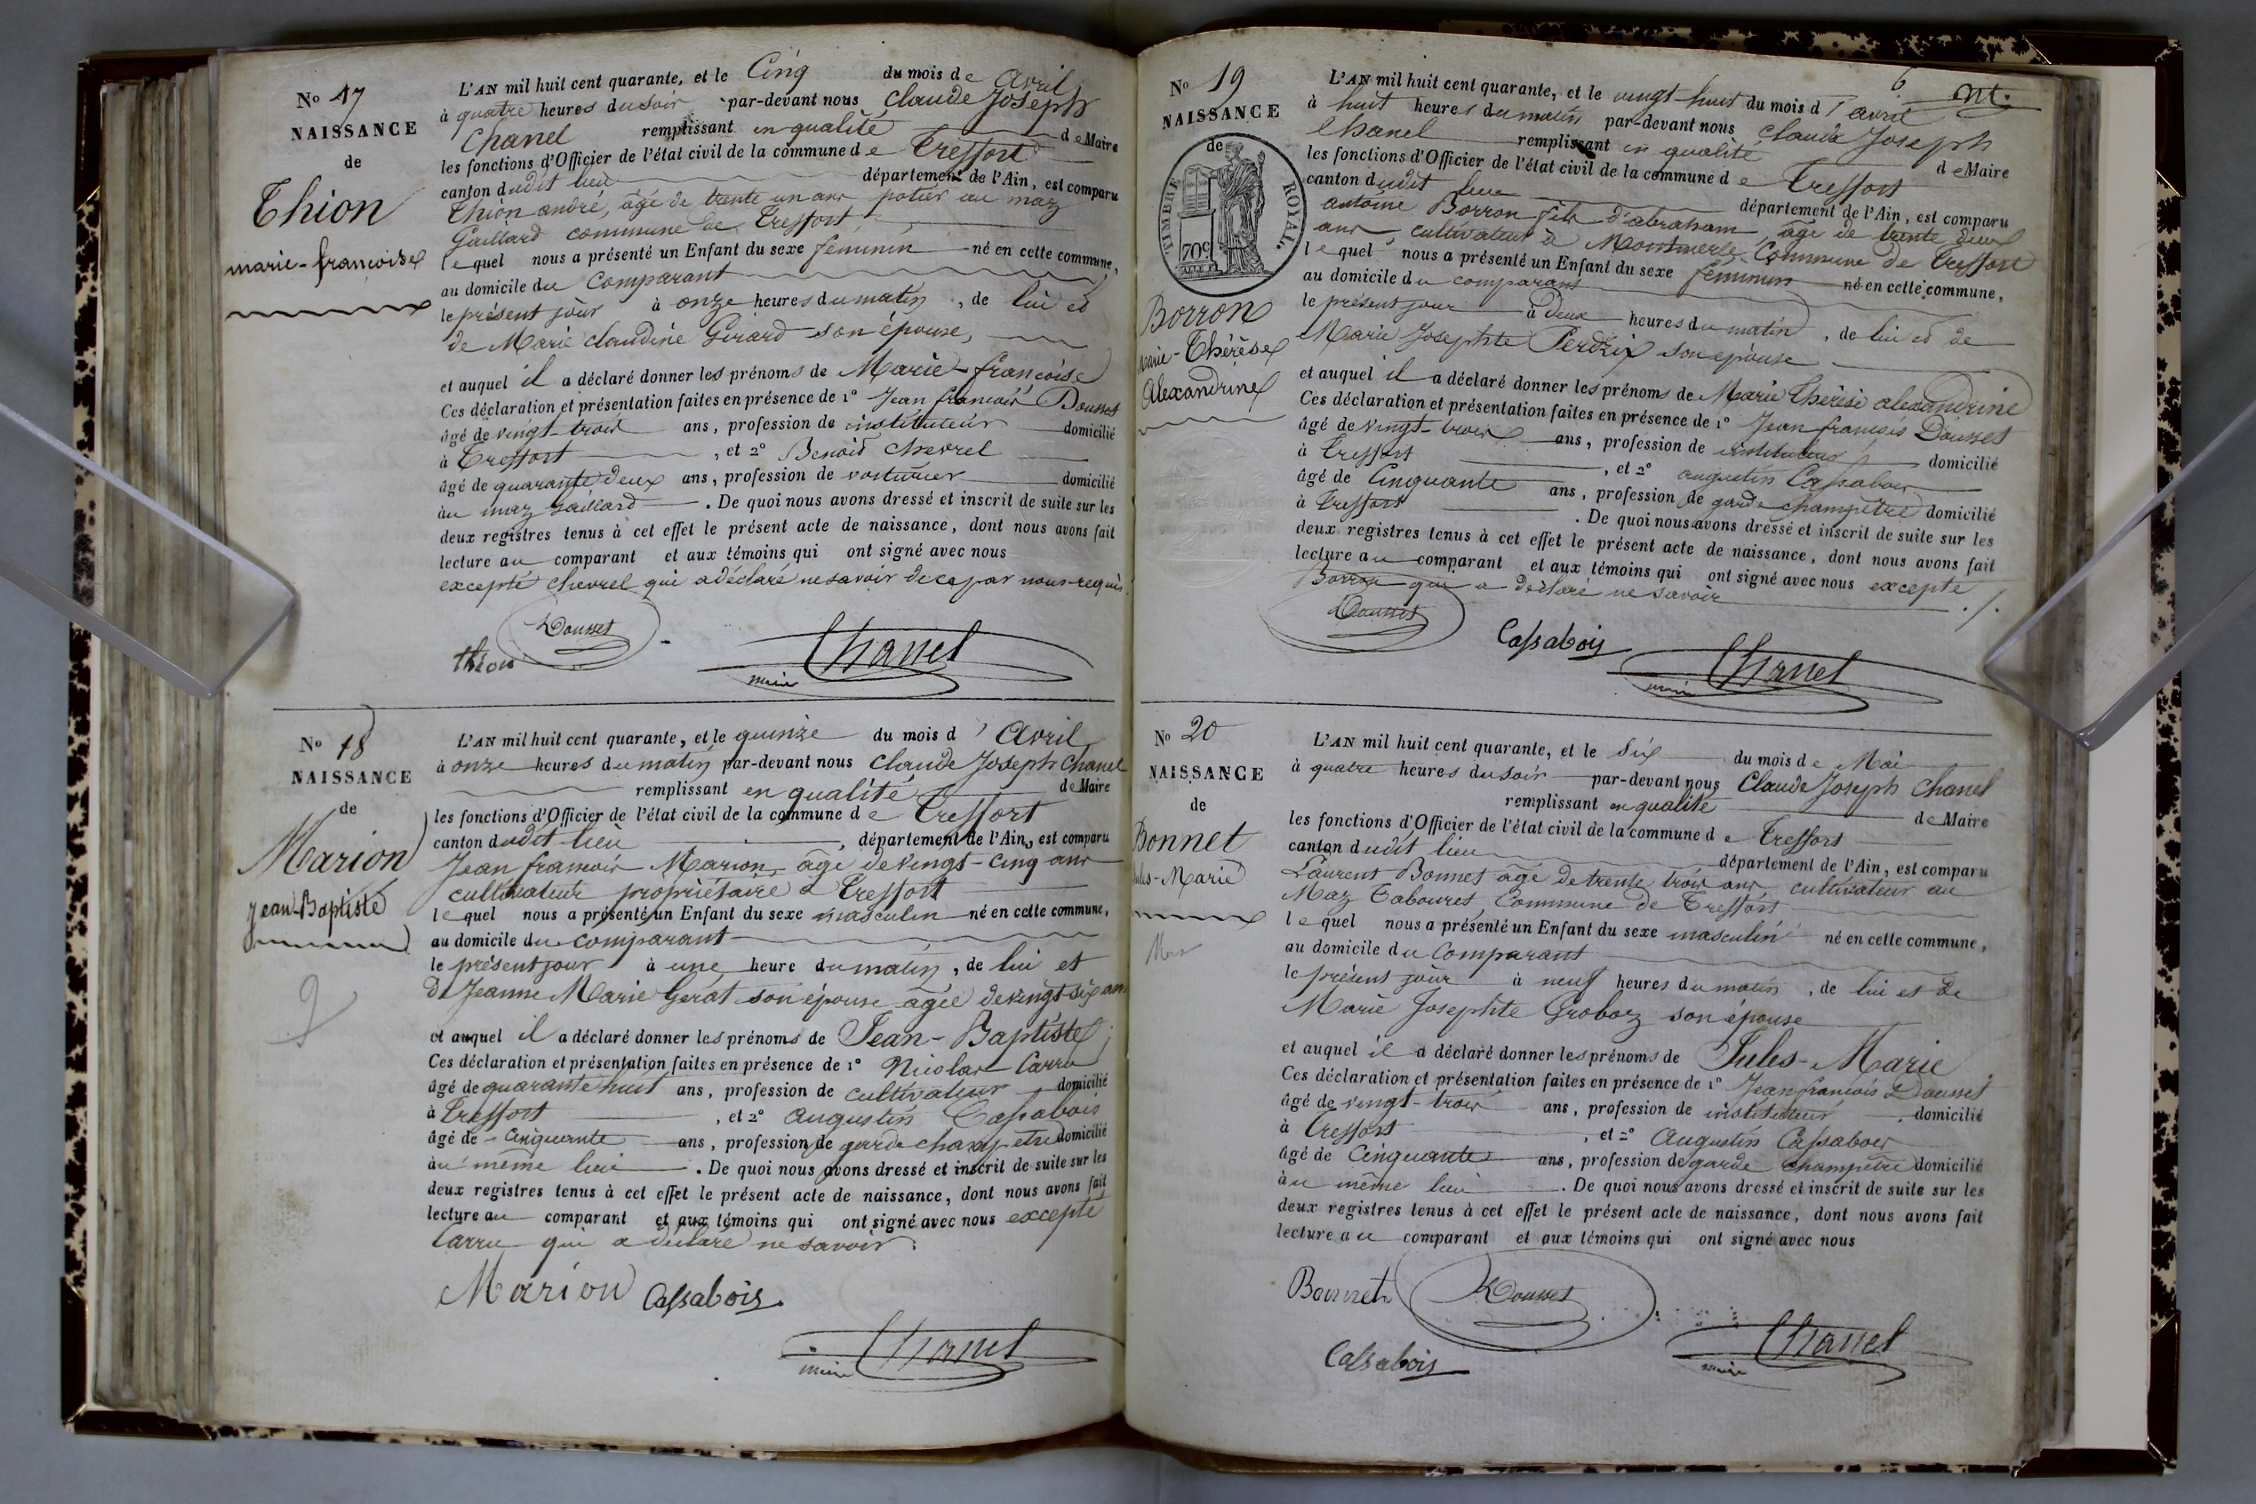 No 17
NAISSANCE
de
Thion
marie-francoise
L'AN mil huit cent quarante, et le Cinq du mois de avril
à quatre heures du soir par-devant nous Claude Joseph
Chanel remplissant en qualité de Maire
les fonctions d'Officier de l'état civil de la commune de Treffort
canton dudit lieu département de l'Ain, est comparu
Thion andré, âgé de trente un ans potier au maz
Gaillard commune de Treffort
lequel nous a présenté un Enfant du sexe féminin né en cette commune,
au domicile du Comparant
le présent jour à onze heures du matin, de lui et
de Marie claudine Girard son épouse,
et auquel il a déclaré donner les prénoms de Marie-francoise
Ces déclaration et présentation faites en présence de 1° Jean francois Dousset
âgé de vingt-trois ans, profession de instituteur domicilié
à Treffort, et 2° Benoit Chevrel
âgé de quarante deux ans, profession de voiturier domicilié
au maz Gaillard. De quoi nous avons dressé et inscrit de suite sur les
deux registres tenus à cet effet le présent acte de naissance, dont nous avons fait
lecture au comparant et aux témoins qui ont signé avec nous
excepté chevrel qui a déclaré ne savoir de ce par nous requis
Dousset
thion
Chanel
maire
No 18
NAISSANCE
de
Marion
Jean-Baptiste
L'AN mil huit cent quarante, et le quinze du mois d'Avril
à onze heures du matin par-devant nous Claude Joseph Chanel
remplissant en qualité de Maire
les fonctions d'Officier de l'état civil de la commune de Treffort
canton dudit lieu, département de l'Ain, est comparu
Jean francois Marion, âgé de vingt-cinq ans
cultivateur propriétaire à Treffort
lequel nous a présenté un Enfant du sexe masculin né en cette commune,
au domicile du comparant
le présent jour à une heure du matin, de lui et
de Jeanne Marie Gerat son épouse âgée de vingt-six ans
et auquel il a déclaré donner les prénoms de Jean-Baptiste
Ces déclaration et présentation faites en présence de 1° Nicolas Carru
âgé de quarante huit ans, profession de cultivateur domicilié
à Treffort, et 2° Augustin Cassabois
âgé de Cinquante ans, profession de garde champetre domicilié
au même lieu. De quoi nous avons dressé et inscrit de suite sur les
deux registres tenus à cet effet le présent acte de naissance, dont nous avons fait
lecture au comparant et aux témoins qui ont signé avec nous excepté
Carru qui a déclaré ne savoir.
Marion Cassabois
Chanel
maire
6
No 19
NAISSANCE
de
TIMBRE ROYAL
70c
Borron
marie-Thérèse
Alexandrine
L'AN mil huit cent quarante, et le vingt-huit du mois d'avril
à huit heures du matin par-devant nous Claude Joseph
Chanel remplissant en qualité de Maire
les fonctions d'Officier de l'état civil de la commune de Treffort
canton dudit lieu département de l'Ain, est comparu
antoine Borron fils d'abraham, âgé de trente deux
ans cultivateur à Montmerle Commune de Treffort
lequel nous a présenté un Enfant du sexe féminin né en cette commune,
au domicile du comparant
le présent jour à deux heures du matin, de lui et de
Marie Josephte Perdrix son épouse
et auquel il a déclaré donner les prénoms de Marie Thérèse alexandrine
Ces déclaration et présentation faites en présence de 1° Jean francois Dousset
âgé de vingt-trois ans, profession de instituteur domicilié
à Treffort, et 2° augustin Cassabois
âgé de Cinquante ans, profession de garde champetre domicilié
à Treffort. De quoi nous avons dressé et inscrit de suite sur les
deux registres tenus à cet effet le présent acte de naissance, dont nous avons fait
lecture au comparant et aux témoins qui ont signé avec nous excepté
Borron qui a déclaré ne savoir
Dousset
Cassabois
Chanel
maire
No 20
NAISSANCE
de
Bonnet
Jules-Marie
L'AN mil huit cent quarante, et le Six du mois de Mai
à quatre heures du soir par-devant nous Claude Joseph Chanel
remplissant en qualité de Maire
les fonctions d'Officier de l'état civil de la commune de Treffort
canton dudit lieu département de l'Ain, est comparu
Laurent Bonnet âgé de trente trois ans, cultivateur au
Maz Tabouret Commune de Treffort
lequel nous a présenté un Enfant du sexe masculin né en cette commune,
au domicile du Comparant
le présent jour à neuf heures du matin, de lui et de
Marie Josephte Groboz son épouse
et auquel il a déclaré donner les prénoms de Jules-Marie
Ces déclaration et présentation faites en présence de 1° Jean francois Dousset
âgé de vingt-trois ans, profession de instituteur, domicilié
à Treffort, et 2° Augustin Cassabois
âgé de Cinquante ans, profession de garde champetre domicilié
au même lieu. De quoi nous avons dressé et inscrit de suite sur les
deux registres tenus à cet effet le présent acte de naissance, dont nous avons fait
lecture au comparant et aux témoins qui ont signé avec nous
Bonnet Dousset
Cassabois
Chanel
maire